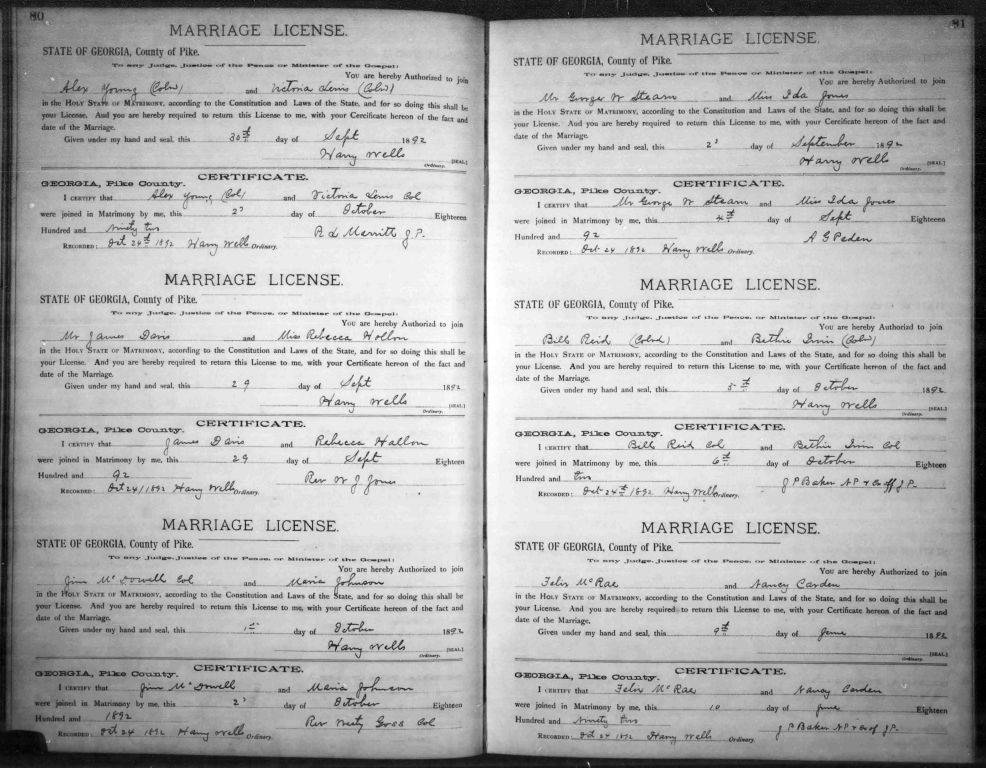 80
MARRIAGE LICENSE.
STATE OF GEORGIA, County of Pike.
To any Judge, Justice of the Peace or Minister of the Gospel:
You are hereby Authorized to join
Alex Young (Cold) and Victoria Lewis (Cold)
in the HOLY STATE OF MATRIMONY, according to the Constitution and Laws of the State, and for so doing this shall be
your License. And you are hereby required to return this License to me, with your Certificate hereon of the fact and
date of the Marriage.
Given under my hand and seal, this 30th day of Sept 1892
Harry Wells [SEAL.]
Ordinary.
CERTIFICATE.
GEORGIA, Pike County.
I CERTIFY that Alex Young (Col) and Victoria Lewis Col
were joined in Matrimony by me, this 2d day of October Eighteen
Hundred and Ninety two R L Merritt J P.
RECORDED: Oct 24th 1892 Harry Wells Ordinary.
MARRIAGE LICENSE.
STATE OF GEORGIA, County of Pike.
To any Judge, Justice of the Peace, or Minister of the Gospel:
You are hereby Authorized to join
Mr James Davis and Miss Rebecca Hollon
in the HOLY STATE OF MATRIMONY, according to the Constitution and Laws of the State, and for so doing this shall be
your License. And you are hereby required to return this License to me, with your Certificate hereon of the fact and
date of the Marriage.
Given under my hand and seal, this 29 day of Sept 1892
Harry Wells [SEAL.]
Ordinary.
CERTIFICATE.
GEORGIA, Pike County.
I CERTIFY that James Davis and Rebecca Hallon
were joined in Matrimony by me, this 29 day of Sept Eighteen
Hundred and 92 Rev W J Jones
RECORDED: Oct 24/1892 Harry Wells Ordinary.
MARRIAGE LICENSE.
STATE OF GEORGIA, County of Pike.
To any Judge, Justice of the Peace, or Minister of the Gospel:
You are hereby Authorized to join
Jim McDowell Col and Maria Johnson
in the HOLY STATE OF MATRIMONY, according to the Constitution and Laws of the State, and for so doing this shall be
your License. And you are hereby required to return this License to me, with your Certificate hereon of the fact and
date of the Marriage.
Given under my hand and seal, this 1st day of October 1892
Harry Wells [SEAL.]
Ordinary.
CERTIFICATE.
GEORGIA, Pike County.
I CERTIFY that Jim McDowell and Maria Johnson
were joined in Matrimony by me, this 2d day of October Eighteen
Hundred and 1892 Rev Goss Col
RECORDED: Oct 24 1892 Harry Wells Ordinary.
81
MARRIAGE LICENSE.
STATE OF GEORGIA, County of Pike.
To any Judge, Justice of the Peace or Minister of the Gospel:
You are hereby Authorized to join
Mr George W Stearn and Miss Ida Jones
in the HOLY STATE OF MATRIMONY, according to the Constitution and Laws of the State, and for so doing this shall be
your License. And you are hereby required to return this License to me, with your Cercificate hereon of the fact and
date of the Marriage.
Given under my hand and seal, this 2d day of September 1892
Harry Wells [SEAL.]
Ordinary.
CERTIFICATE.
GEORGIA, Pike County.
I CERTIFY that Mr George W Stearn and Miss Ida Jones
were joined in Matrimony by me, this 4th day of Sept Eighteen
Hundred and 92 A G Peden
RECORDED: Oct 24 1892 Harry Wells Ordinary.
MARRIAGE LICENSE.
STATE OF GEORGIA, County of Pike.
To any Judge, Justice of the Peace, or Minister of the Gospel:
You are hereby Authorized to join
Bill Reid (Colrd) and Bethie Irvin (Cold)
in the HOLY STATE OF MATRIMONY, according to the Constitution and Laws of the State, and for so doing this shall be
your License. And you are hereby required to return this License to me, with your Certificate hereon of the fact and
date of the Marriage.
Given under my hand and seal, this 5th day of October 1892
Harry Wells [SEAL.]
Ordinary.
CERTIFICATE.
GEORGIA, Pike County.
I CERTIFY that Bill Reid Col and Bethie Irvin Col
were joined in Matrimony by me, this 6th day of October Eighteen
Hundred and two J P Baker N P & Ex off J.P.
RECORDED: Oct 24th 1892 Harry Wells Ordinary.
MARRIAGE LICENSE.
STATE OF GEORGIA, County of Pike.
To any Judge, Justice of the Peace, or Minister of the Gospel:
You are hereby Authorized to join
Felix McRae and Nancy Carden
in the HOLY STATE OF MATRIMONY, according to the Constitution and Laws of the State, and for so doing this shall be
your License. And you are hereby required to return this License to me, with your Certificate hereon of the fact and
date of the Marriage.
Given under my hand and seal, this 9th day of June 1892
[SEAL.]
Ordinary.
CERTIFICATE.
GEORGIA, Pike County.
I CERTIFY that Felix McRae and Nancy Carden
were joined in Matrimony by me, this 10 day of June Eighteen
Hundred and Ninety two J P Baker N P & Ex of J.P.
RECORDED: Oct 24 1892 Harry Wells Ordinary.